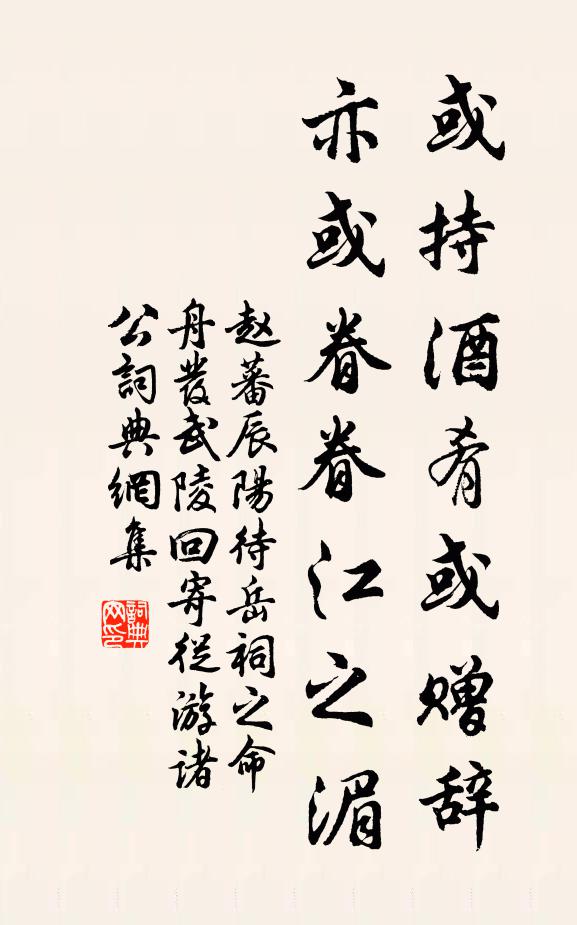 或持酒肴或赠辞
亦或眷眷江之湄
赵蕃辰陽待岳祠之命
舟發武陵回寄從游诸
公詞典網集
詞典网印